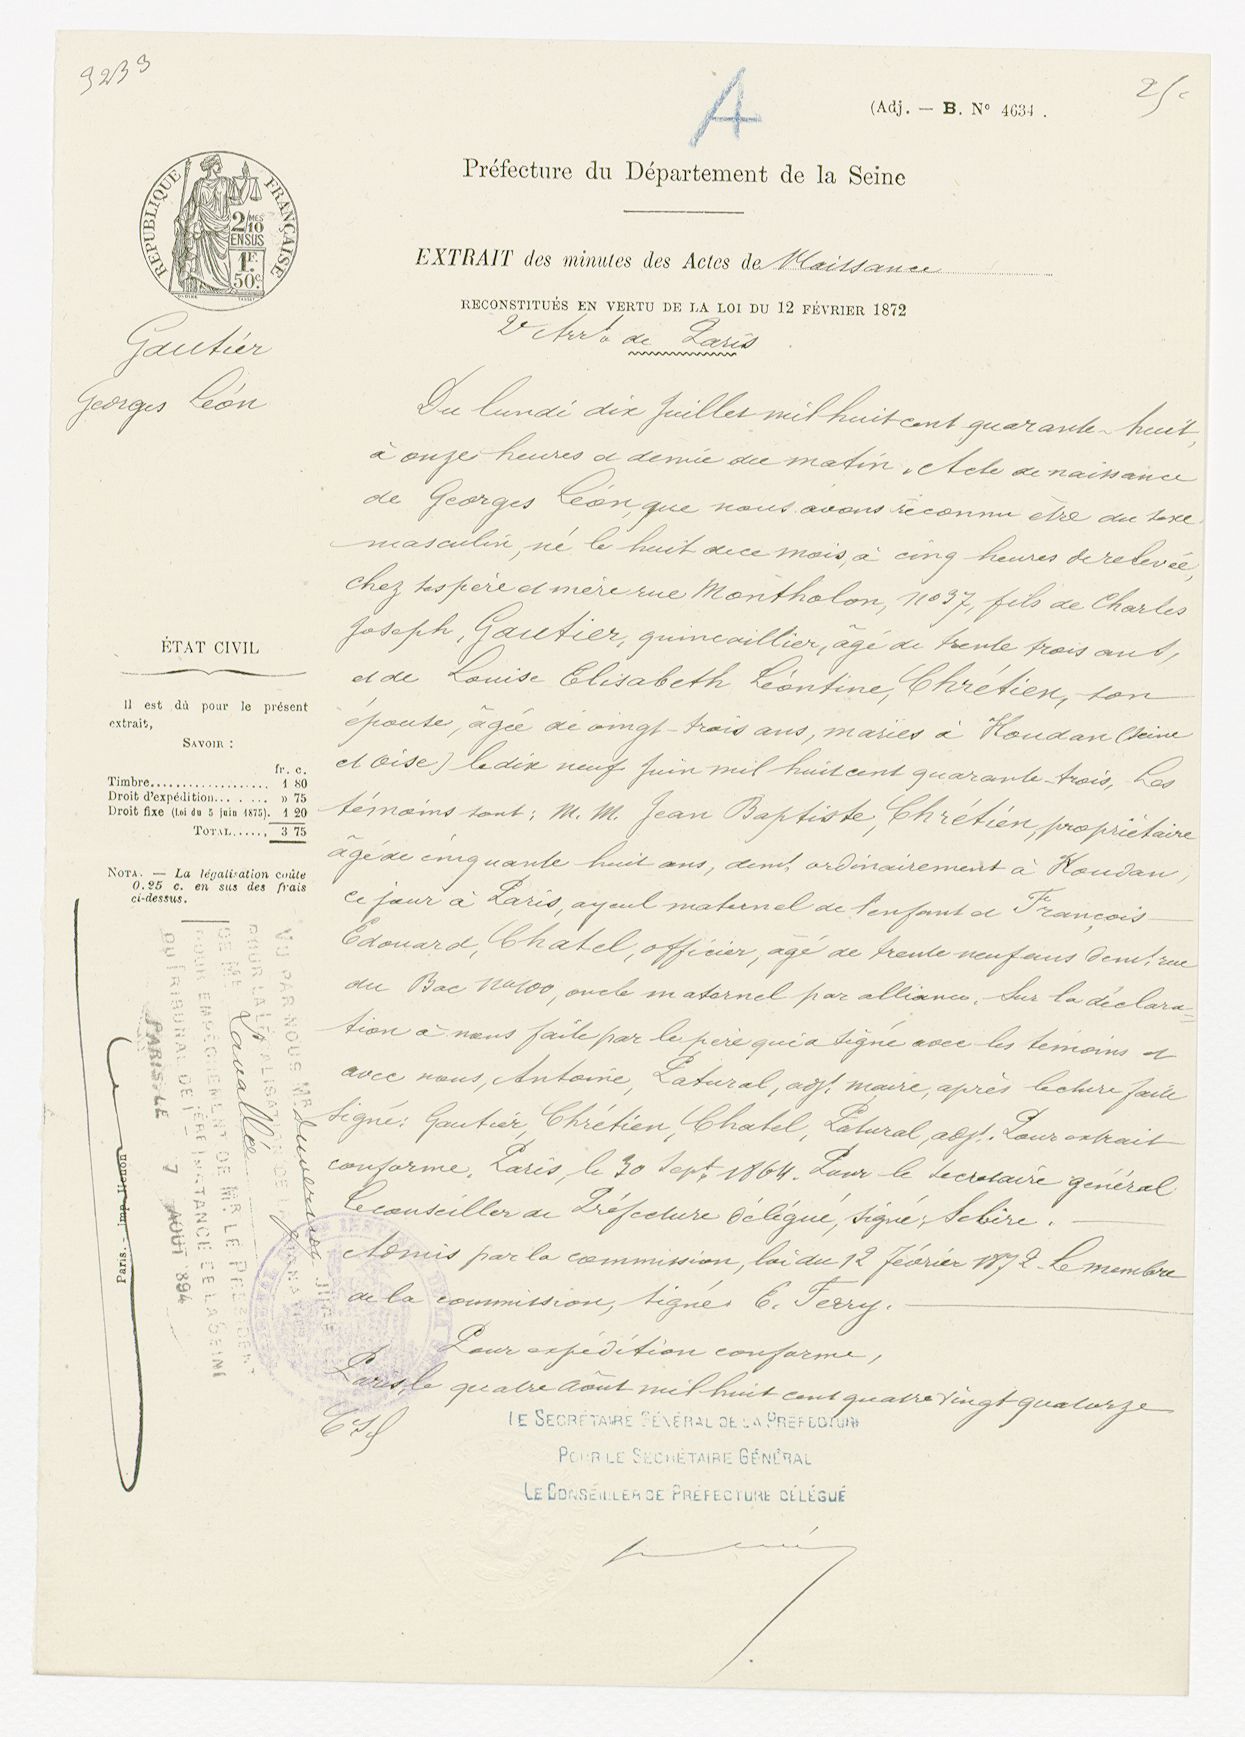 3233
A
25 c
(Adj. — B. N° 4634.
RÉPUBLIQUE FRANÇAISE
2/10 MES
EN SUS
1 F.
50 c.
Préfecture du Département de la Seine
EXTRAIT des minutes des Actes de Naissance
RECONSTITUÉS EN VERTU DE LA LOI DU 12 FÉVRIER 1872
2e Arrt de Paris
Gautier
Georges Léon
Du lundi dix Juillet mil huit cent quarante-huit,
à onze heures et demie du matin. Acte de naissance
de Georges Léon, que nous avons reconnu être du sexe
masculin, né le huit de ce mois, à cinq heures de relevée,
chez ses père et mère rue Montholon, No 37, fils de Charles
Joseph, Gautier, quincaillier, âgé de trente trois ans,
et de Louise Elisabeth Léontine, Chrétien, son
épouse, âgée de vingt-trois ans, mariés à Houdan (Seine
et Oise) le dix neuf Juin mil huit cent quarante-trois, Les
témoins sont: M. M. Jean Baptiste, Chrétien, propriétaire
âgé de cinquante huit ans, demt ordinairement à Houdan,
ce jour à Paris, ayeul maternel de l'enfant et François
Edouard, Chatel, officier, âgé de trente neuf ans demt rue
du Bac No 100, oncle maternel par alliance. Sur la déclara-
tion à nous faite par le père qui a signé avec les témoins et
avec nous, Antoine, Patural, adjt maire, après lecture faite
signé: Gautier, Chrétien, Chatel, Patural, adjt. Pour extrait
conforme. Paris, le 30 Sept. 1864. Pour le secrétaire général
Le conseiller de Préfecture délégué, signé: Sebire.
Admis par la commission, loi du 12 Février 1872. Le membre
de la commission, signé: E. Ferry.
Pour expédition conforme,
Paris, le quatre Août mil huit cent quatre vingt quatorze
LE SECRÉTAIRE GÉNÉRAL DE LA PREFECTURE
POUR LE SECRÉTAIRE GÉNÉRAL
LE CONSEILLER DE PRÉFECTURE DÉLÉGUÉ
ÉTAT CIVIL
Il est dû pour le présent
extrait,
SAVOIR :
fr. c.
Timbre.................. 1 80
Droit d'expédition........ » 75
Droit fixe (Loi du 5 juin 1875). 1 20
TOTAL....., 3 75
NOTA. — La légalisation coûte
0.25 c. en sus des frais
ci-dessus.
VU PAR NOUS MR JUGE
POUR LA LÉGALISATION DE LA SIGNATURE
DE MR Lavallée
POUR EMPÊCHEMENT DE MR LE PRÉSIDENT
DU TRIBUNAL DE 1ÈRE INSTANCE DE LA SEINE
PARIS LE 7 AOUT 1894
Paris. - imp. Henon